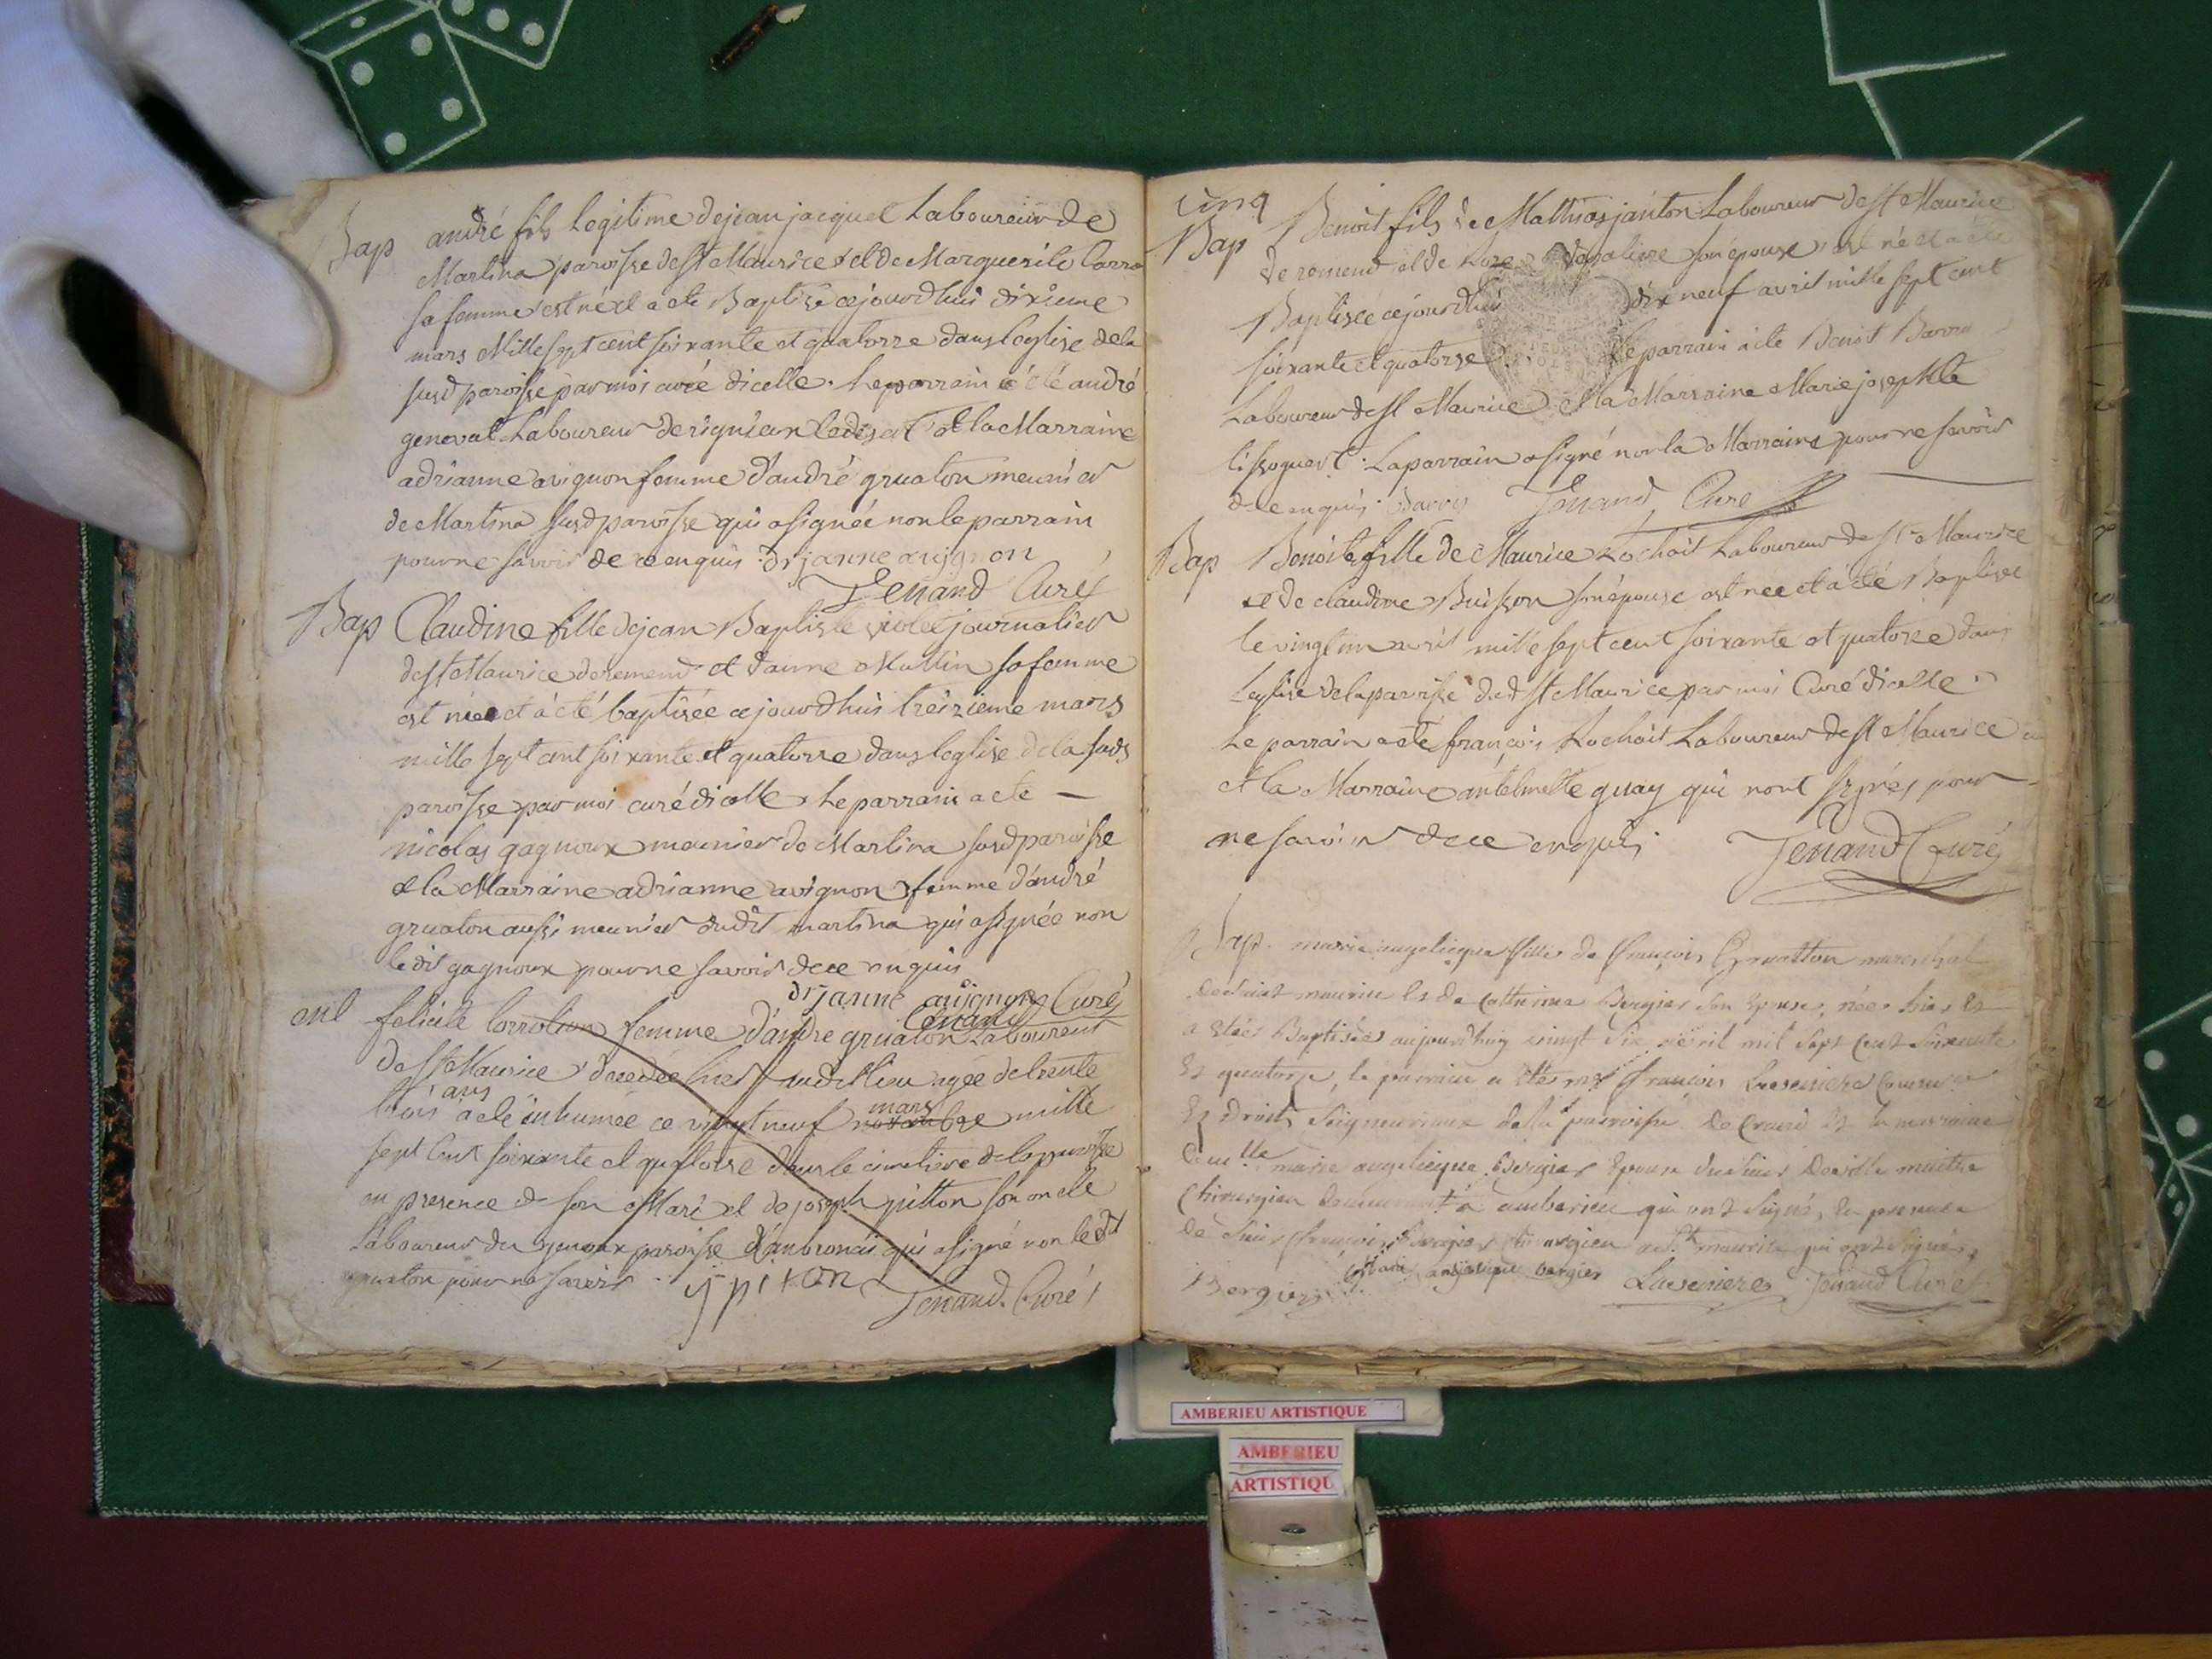 Bap andré fils legitime dejean jacquet Laboureur de
Martina paroisse de st Maurice et de Marguerite Carro
sa femme est ne et a ete Baptisé cejourdhui dixieme
mars Mille sept cent soixante et quatorze dans leglise dela
susd paroisse par moi curé dicelle. le parrain a été andré
genevat Laboureur de rignieux le desert et la Marraine
adrianne avignon femme d'andré gruaton meunier
de Martina susd paroisse qui a signée non le parrain
pour ne savoir de ce enquis drjanne avignon
Tenand Curé
Bap Claudine fille dejean Baptiste violet journalier
de st Maurice deremend et d'anne Mattin sa femme
est née et a été baptisée cejourdhui treizieme mars
mille sept cent soixante et quatorze dans leglise dela susd
paroisse par moi curé dicelle. le parrain a ete
nicolas gagnoux meunier de Martina susd paroisse
et la Marraine adrianne avignon femme d'andré
gruaton aussi meunier dudit martina qui a signée non
ledit gagnoux pour ne savoir de ce enquis
drjanne avignon Tenand Curé
felicité femme d'andre gruaton Laboureur
de st Maurice decedée hier audit lieu agée de trente
trois ans a eté inhumée ce vingt neuf novembre mars mille
sept cent soixante et quatorze dans le cimetiere de la paroisse
en presence de son Mari et de joseph pitton son oncle
Laboureur du genoux paroisse d'ambronai qui a signé non ledt
gruaton pour ne savoir j piton Tenand. Curé
cinq
Bap Benoit fils de Mathias janton Laboureur de st Maurice
de remend et de son épouse est né et a été
Baptisée cejourdhui dix neuf avril mille sept cent
soixante et quatorze le parrain a ete Benoit Barro
Laboureur de st Maurice et la Marraine Marie josephte
lissoguest. Le parrain a signé non la Marraine pour ne savoir
de ce enquis. Barro Tenand Curé
Bap Benoite fille de Maurice Rochait Laboureur de st Maurice
et de claudine Buisson son épouse est nee et a été Baptisee
le vingt un avril mille sept cent soixante et quatorze dans
Leglise dela paroisse dud st Maurice par moi Curé dicelle.
Le parrain a eté françois Rochait Laboureur de st Maurice
et la Marraine antelmette guay qui nont signés pour
ne savoir de ce enquis Tenand Curé
Bap. marie angelicque fille de françois Gruatton mareschal
de saint maurice et de Catherine Bergier son epouse, née hier et
a etée Baptisée aujourdhuy vingt six avril mil sept cent soixante
et quatorze, le parrain a été françois Lavesniere
et droits seigneuriaux de la parroisse de et la marraine
demlle marie angelicque Bergier epouse du sieur maitre
Chirurgien demeurant à amberieu qui ont signé, en presence
de sieur françois Bergier chirurgien a st maurice qui ont signés
Bergier marie angelique bergier Lavesniere Tenand Curé
AMBERIEU ARTISTIQUE
AMBERIEU
ARTISTIQU